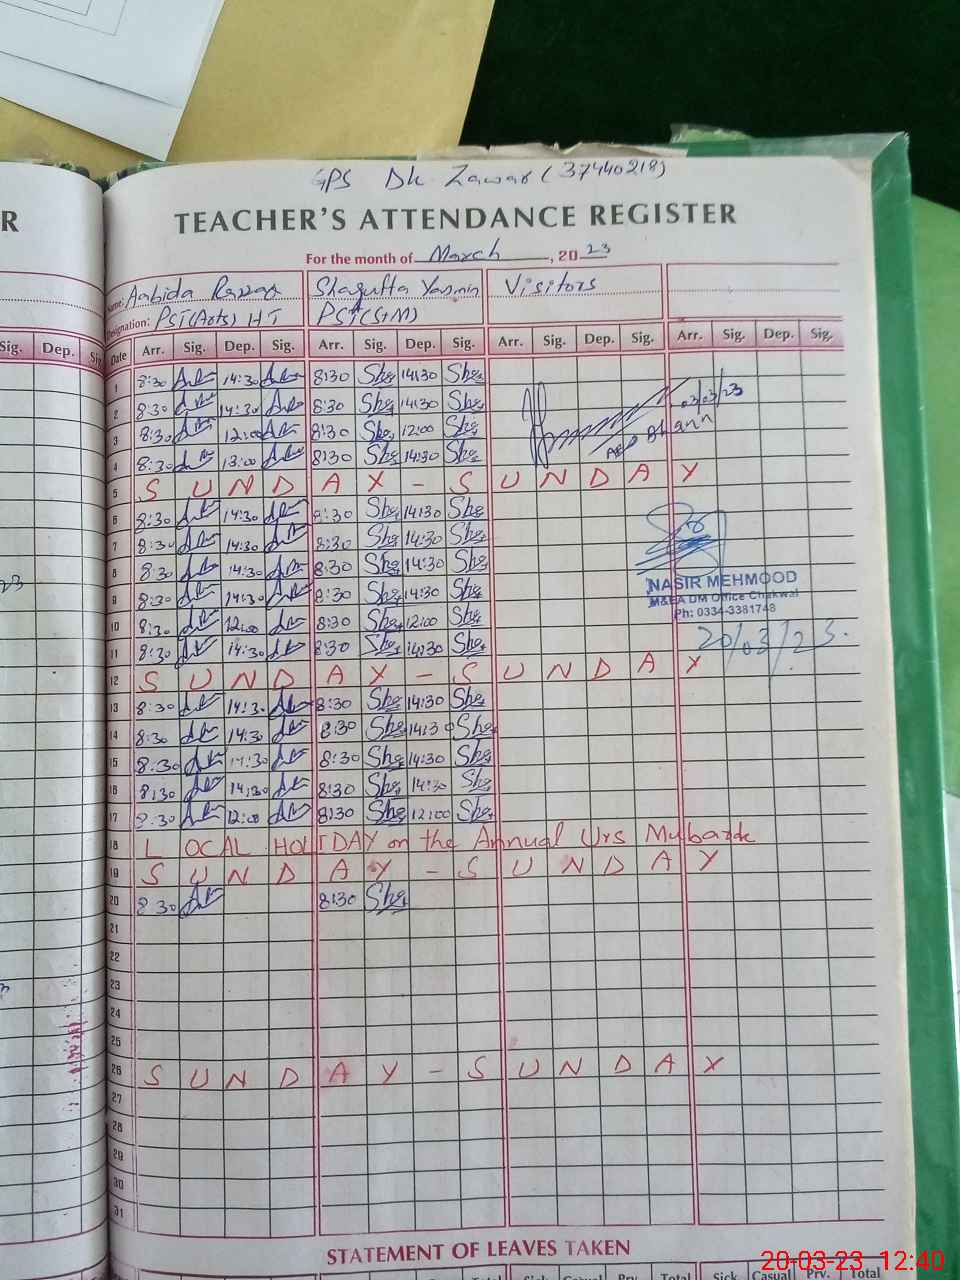 GPS Dk Zawar (37440218)
R
TEACHER'S ATTENDANCE REGISTER
For the month of March, 2023
Name: Aabida Razzaq Shagufta Yasmin Visitors
Designation: PST(Arts) HT PST(S+M)
Sig. Dep. Sig. Date Arr. Sig. Dep. Sig. Arr. Sig. Dep. Sig. Arr. Sig. Dep. Sig. Arr. Sig. Dep. Sig.
1 8:30 14:30 8:30 Shg 14:30 Shg
2 8:30 14:30 8:30 Shg 14:30 Shg 03/03/23
3 8:30 12:00 8:30 Shg 12:00 Shg
4 8:30 13:00 8:30 Shg 14:30 Shg
5 S U N D A Y - S U N D A Y
6 8:30 14:30 8:30 Shg 14:30 Shg
7 8:30 14:30 8:30 Shg 14:30 Shg
8 8:30 14:30 8:30 Shg 14:30 Shg
NASIR MEHMOOD
9 8:30 14:30 8:30 Shg 14:30 Shg
M&EA DM Office Chakwal
Ph: 0334-3381748
10 8:30 12:00 8:30 Shg 12:00 Shg
20/03/23.
11 8:30 14:30 8:30 Shg 14:30 Shg
12 S U N D A Y - S U N D A Y
13 8:30 14:30 8:30 Shg 14:30 Shg
14 8:30 14:30 8:30 Shg 14:30 Shg
15 8:30 14:30 8:30 Shg 14:30 Shg
16 8:30 14:30 8:30 Shg 14:30 Shg
17 8:30 12:00 8:30 Shg 12:00 Shg
18 LOCAL HOLIDAY on the Annual Urs Mubarak
19 S U N D A Y - S U N D A Y
20 8:30 8:30 Shg
21
22
23
24
25
26 S U N D A Y - S U N D A Y
27
28
29
30
31
STATEMENT OF LEAVES TAKEN
Sick Casual Prv. Total Sick Casual Prv. Total
20-03-23 12:40